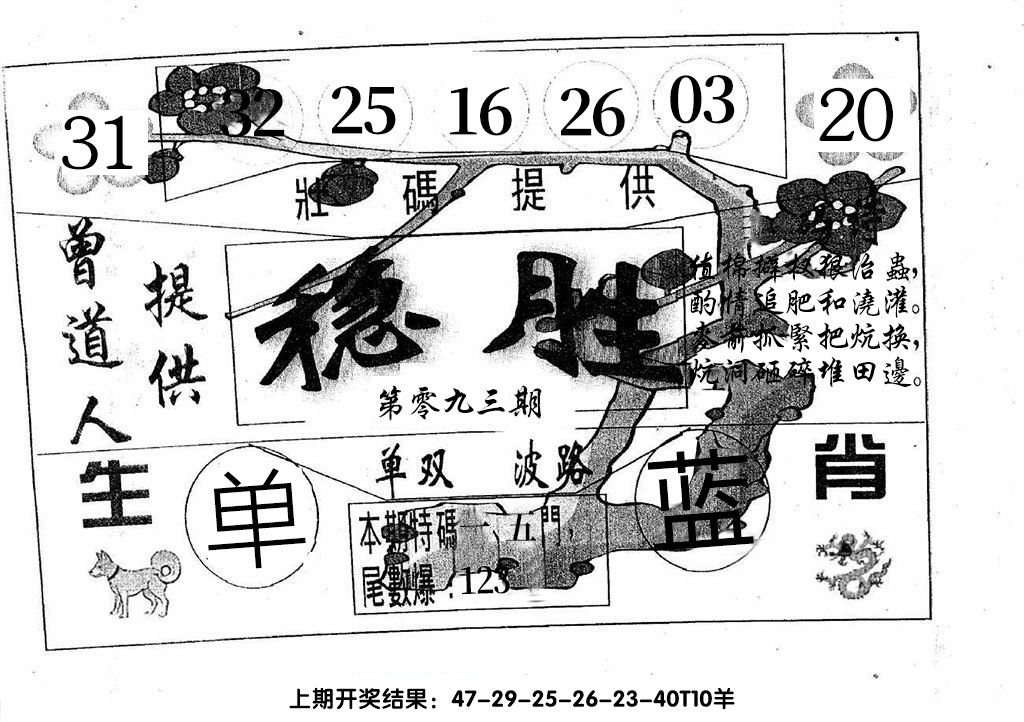 31
32 25 16 26 03
20
壯碼提供
曾道人
提供
稳胜
第零九三期
酌情追肥和澆灌。
抓緊把炕换，
炕洞砸碎堆田邊。
单双 波路
生肖
单
蓝
本期特碼一、五門，
尾數爆：123
上期开奖结果：47-29-25-26-23-40T10羊